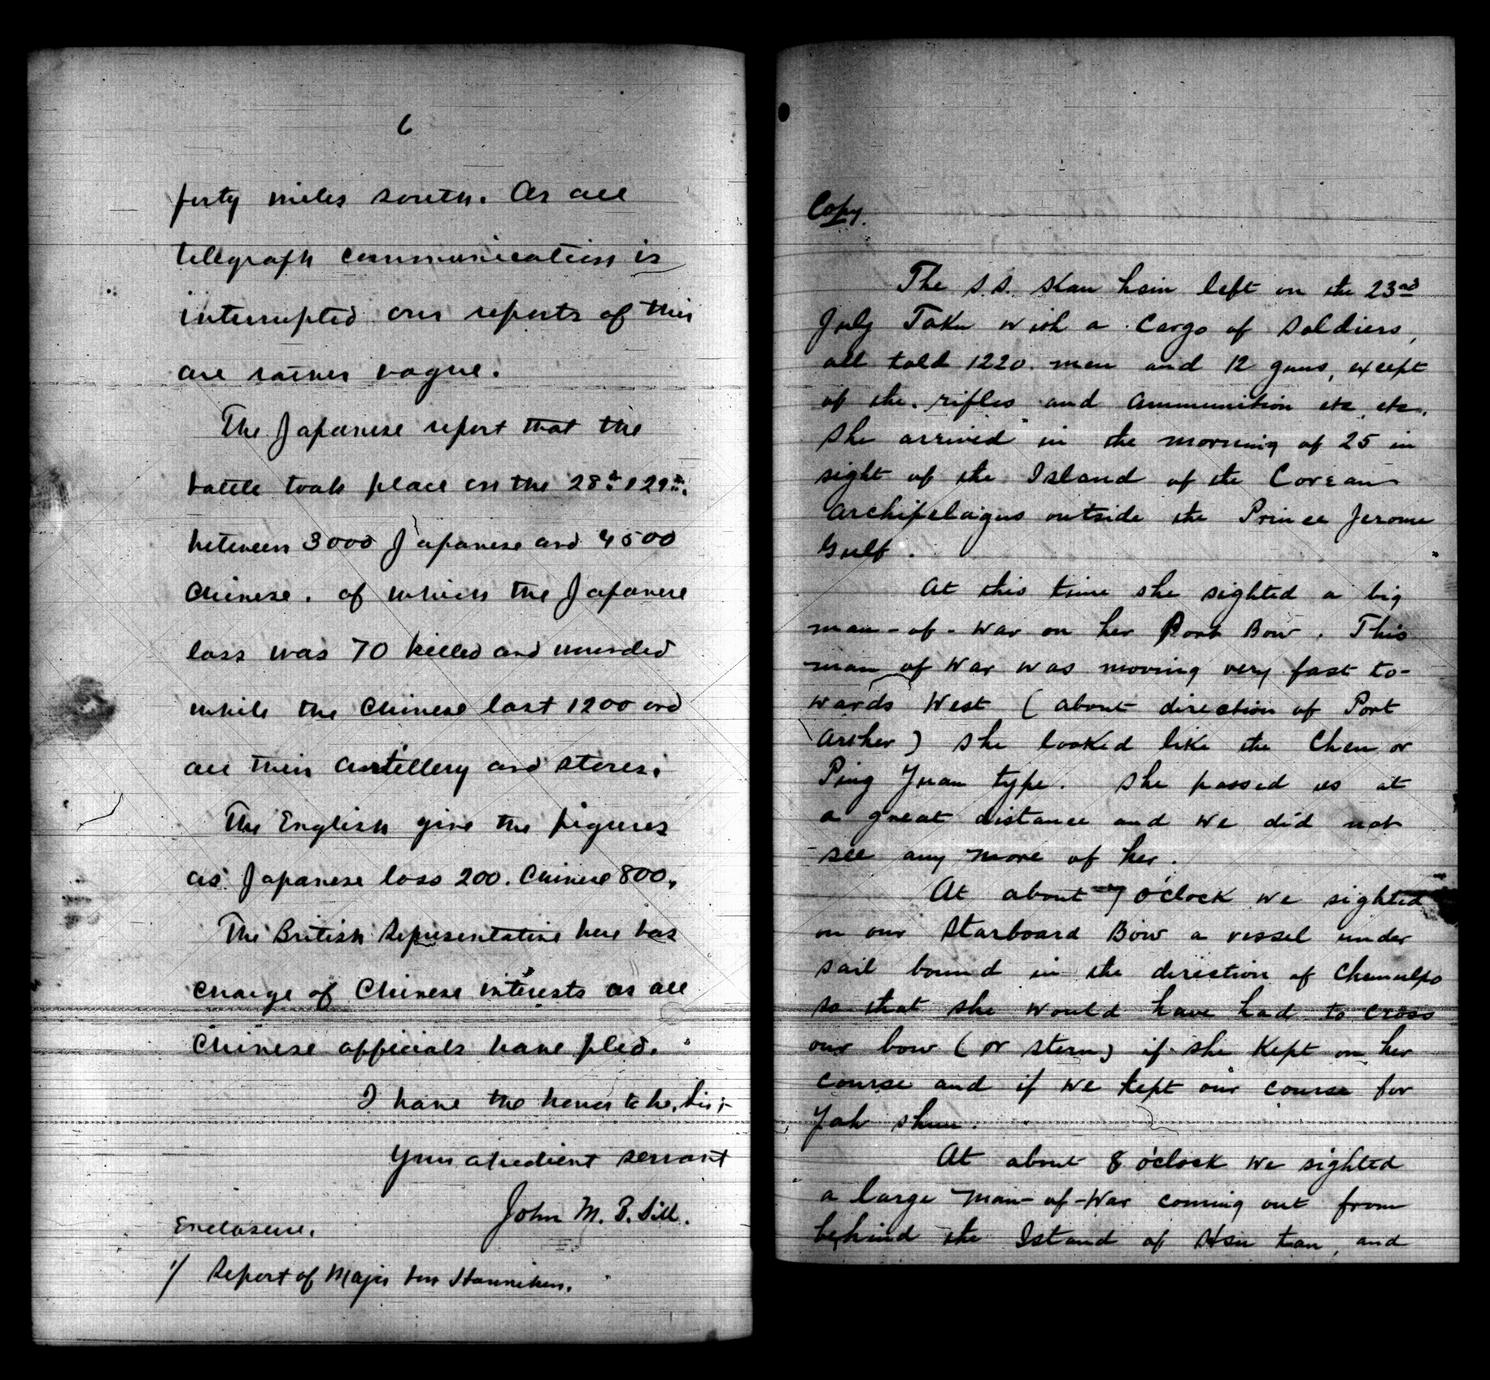 6
forty miles south. As all
telegraph communication is
interrupted our reports of this
are rather vague.
The Japanese report that the
battle took place on the 28th & 29th.
between 3000 Japanese and 4500
Chinese. of which the Japanese
loss was 70 killed and wounded
while the Chinese lost 1200 and
all their artillery and stores.
The English give the figures
as Japanese loss 200. Chinese 800.
The British Representative here has
charge of Chinese interests as all
Chinese officials have fled.
I have the honor to be, Sir,
Your obedient servant
John M. B. Sill.
Enclosure.
1/ Report of Major von Hanneken.
Copy.
The S.S. Kow hsin left on the 23rd
July Taku with a Cargo of Soldiers,
all told 1220 men and 12 guns, except
of the rifles and Ammunition etc. etc.
She arrived in the morning of 25 in
sight of the Island of the Corean
Archipelagus outside the Prince Jerome
Gulf.
At this time she sighted a big
man-of-war on her Port Bow. This
man of war was moving very fast to-
wards West (about direction of Port
Arther) She looked like the Chen or
Ping Yuan type. She passed us at
a great distance and we did not
see any more of her.
At about 7 o'clock we sighted
on our Starboard Bow a vessel under
sail bound in the direction of Chemulpo
so that she would have had to cross
our bow (or stern) if she kept on her
course and if we kept our course for
Yah shan.
At about 8 o'clock we sighted
a large man-of-War coming out from
behind the Island of Hsu tan, and